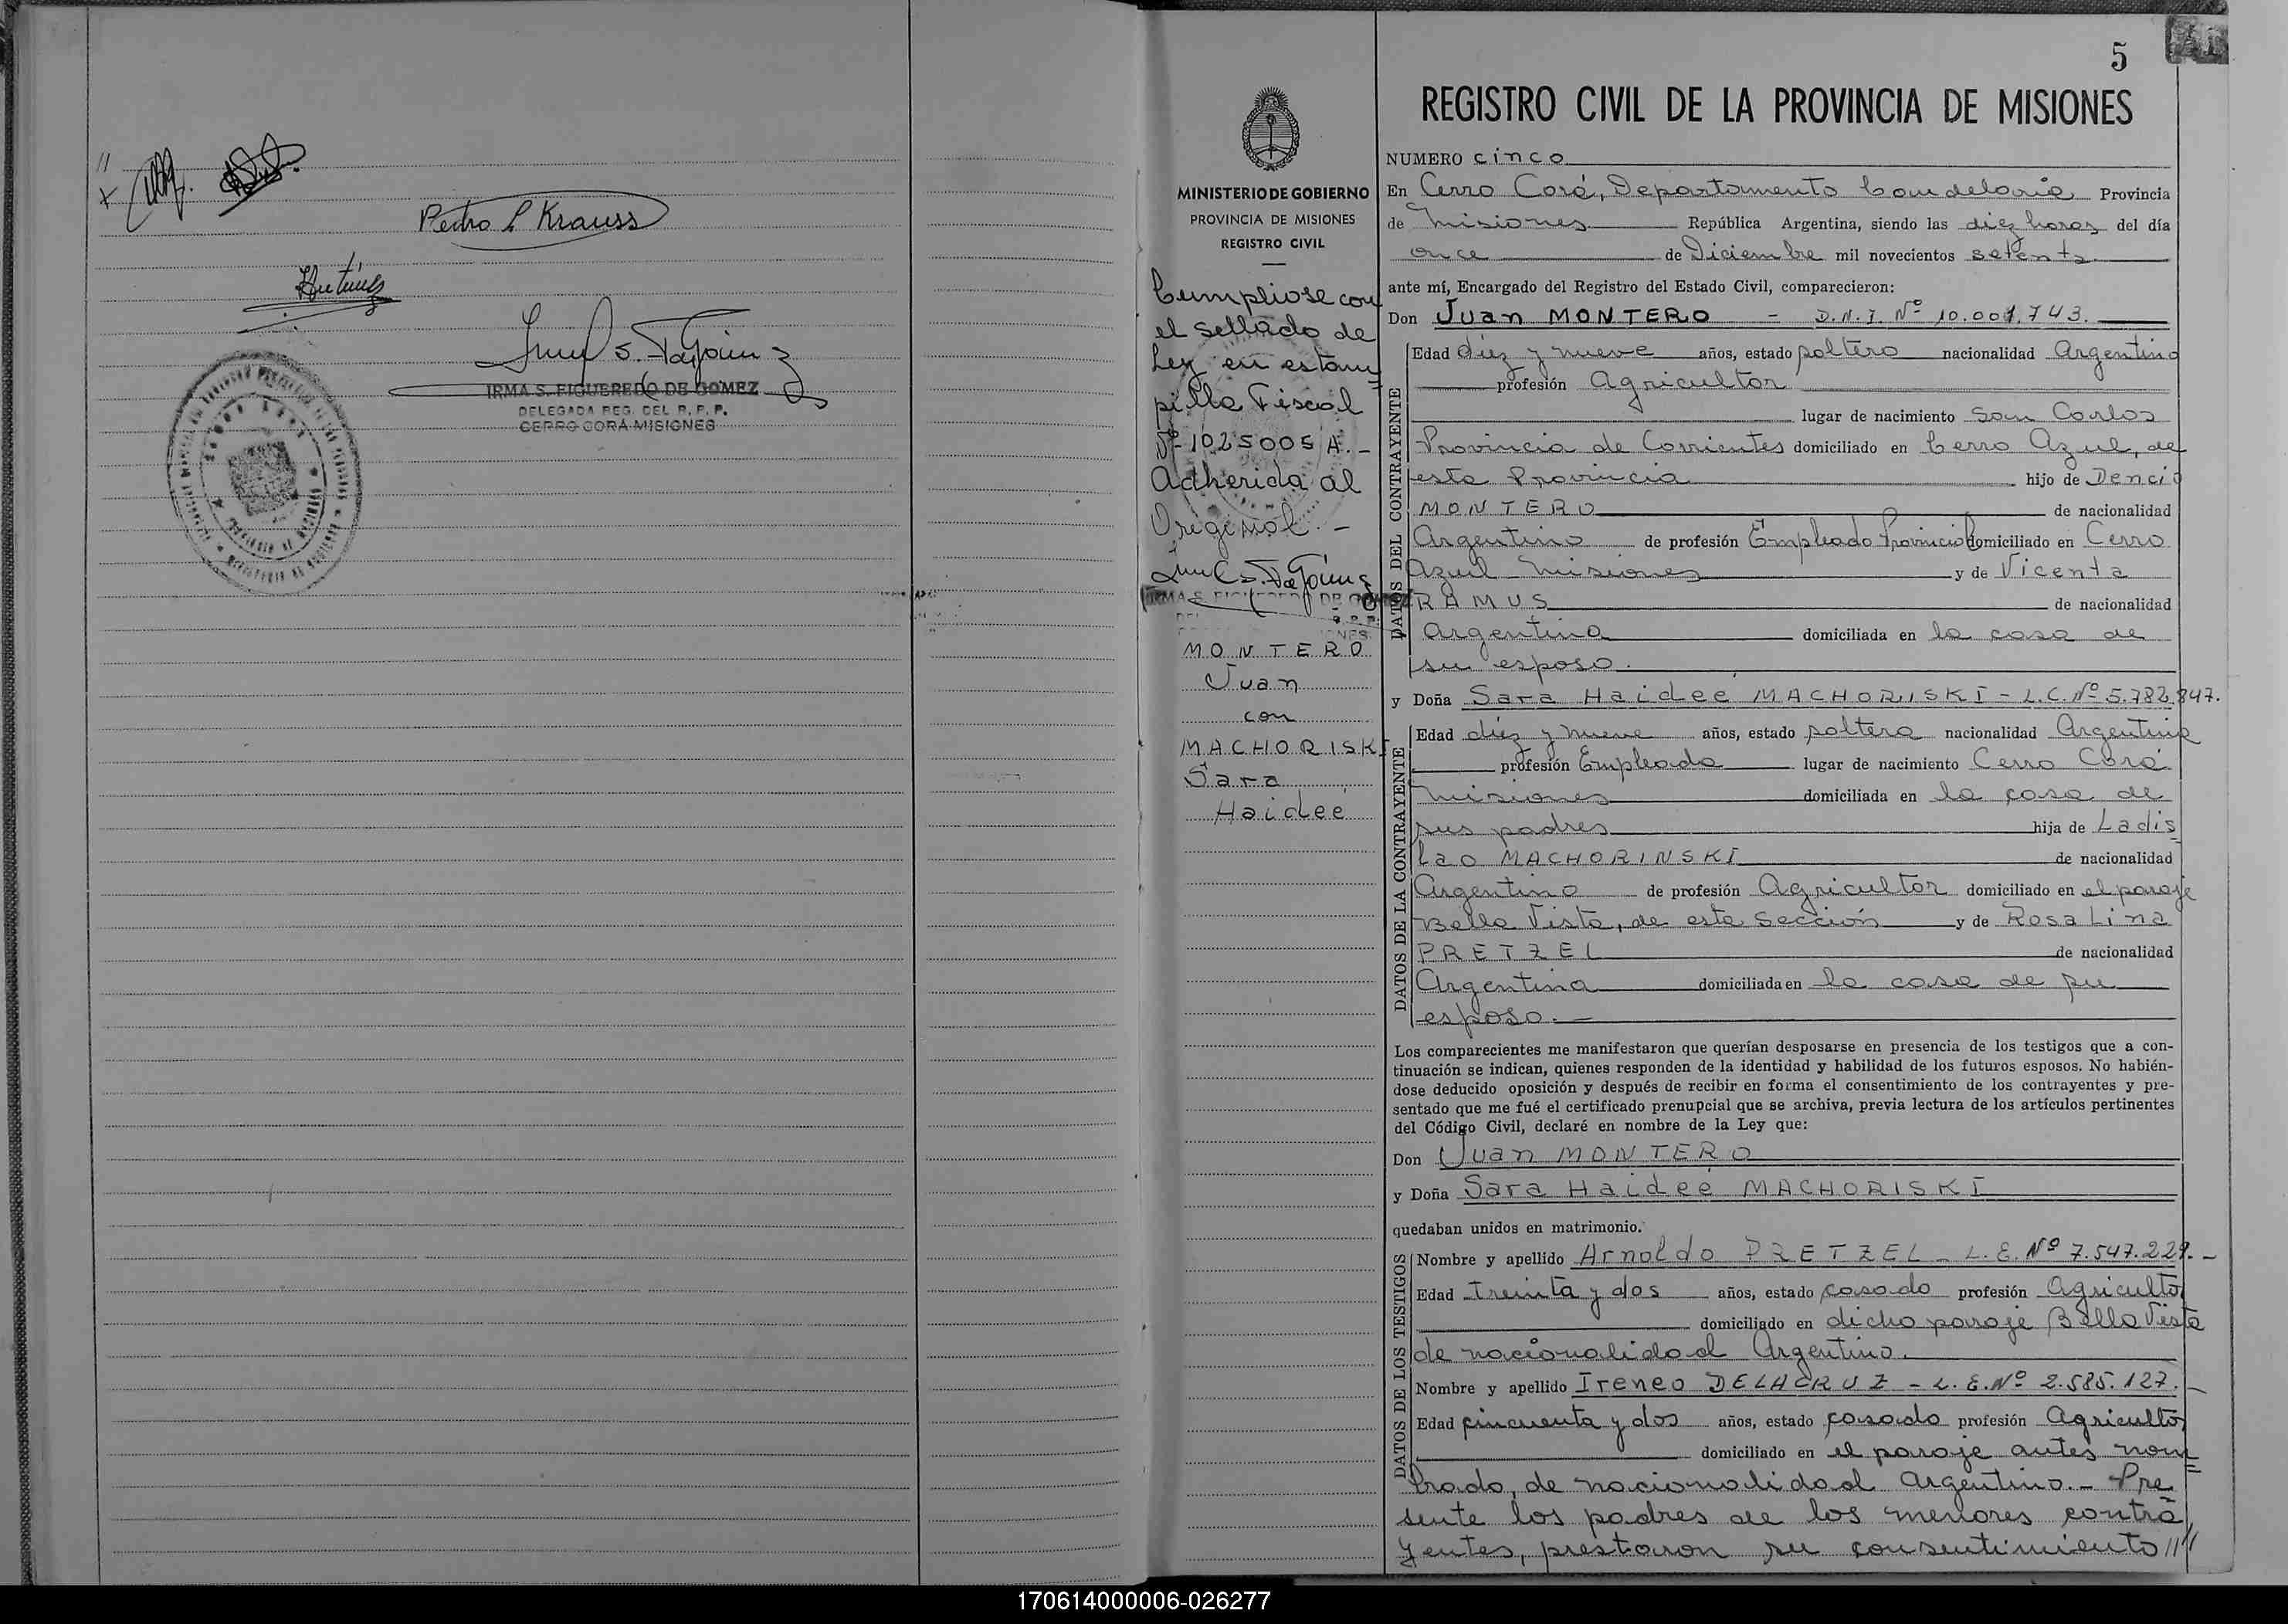 Pedro L Krauss
IRMA S. FIGUEREDO DE GOMEZ
DELEGADA REG. DEL R. P. P.
CERRO CORÁ MISIONES
5
REGISTRO CIVIL DE LA PROVINCIA DE MISIONES
MINISTERIO DE GOBIERNO
PROVINCIA DE MISIONES
REGISTRO CIVIL
Cumpliose con
el sellado de
Ley en estam
pilla Fiscal
Nº 1025005 A.-
Adherida al
Original.-
MONTERO
Juan
con
MACHORISKI
Sara
Haideé
NUMERO cinco
En Cerro Corá, Departamento Candelaria Provincia
de Misiones República Argentina, siendo las diez horas del día
once de Diciembre mil novecientos setenta
ante mí, Encargado del Registro del Estado Civil, comparecieron:
Don Juan MONTERO - D.N.I. Nº 10.001.743.
DATOS DEL CONTRAYENTE
Edad diez y nueve años, estado soltero nacionalidad Argentino
profesión Agricultor
lugar de nacimiento San Carlos
Provincia de Corrientes domiciliado en Cerro Azul, de
esta Provincia hijo de Dencio
MONTERO de nacionalidad
Argentino de profesión Empleado Provincial domiciliado en Cerro
Azul Misiones y de Vicenta
RAMUS de nacionalidad
Argentina domiciliada en la casa de
su esposo.
y Doña Sara Haideé MACHORISKI - L.C. Nº 5.782.847.
DATOS DE LA CONTRAYENTE
Edad diez y nueve años, estado soltera nacionalidad Argentina
profesión Empleada lugar de nacimiento Cerro Corá
Misiones domiciliada en la casa de
sus padres hija de Ladis
lao MACHORINSKI de nacionalidad
Argentino de profesión Agricultor domiciliado en el paraje
Bella Vista, de esta Sección y de Rosa Lina
PRETZEL de nacionalidad
Argentina domiciliada en la casa de su
esposo.-
Los comparecientes me manifestaron que querían desposarse en presencia de los testigos que a con-
tinuación se indican, quienes responden de la identidad y habilidad de los futuros esposos. No habién-
dose deducido oposición y después de recibir en forma el consentimiento de los contrayentes y pre-
sentado que me fué el certificado prenupcial que se archiva, previa lectura de los artículos pertinentes
del Código Civil, declaré en nombre de la Ley que:
Don Juan MONTERO
y Doña Sara Haideé MACHORISKI
quedaban unidos en matrimonio.
DATOS DE LOS TESTIGOS
Nombre y apellido Arnoldo PRETZEL - L.E. Nº 7.547.229.-
Edad treinta y dos años, estado casado profesión Agricultor
domiciliado en dicho paraje Bella Vista
de nacionalidad Argentino.
Nombre y apellido Ireneo DELACRUZ - L.E. Nº 2.585.127.-
Edad cincuenta y dos años, estado casado profesión Agricultor
domiciliado en el paraje antes nom
brado, de nacionalidad Argentino.- Pre
sente los padres de los menores contra
yentes, prestaron su consentimiento //
170614000006-026277